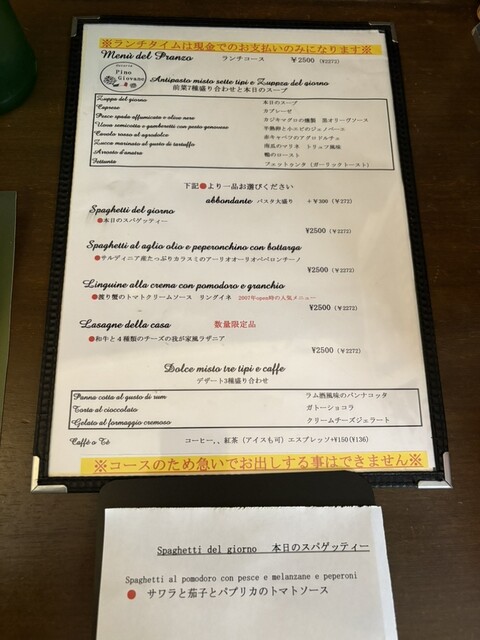 ※ランチタイムは現金でのお支払いのみになります※
Menù del Pranzo ランチコース ¥2500 (¥2273)
Osteria
Pino
Giovane
Antipasto misto sette tipi e Zuppza del giorno
前菜7種盛り合わせと本日のスープ
Zuppa del giorno 本日のスープ
Caprese カプレーゼ
Pesce spada affumicata e olive nere カジキマグロの燻製 黒オリーヴソース
Uova semicotta e gamberetti con pesto genovese 半熟卵と小エビのジェノベーゼ
Cavolo rosso al agrodolce 赤キャベツのアグロドルチェ
Zucca marinato al gusto di tartuffo 南瓜のマリネ トリュフ風味
Arrosto d'anatra 鴨のロースト
Fettunta フェットゥンタ (ガーリックトースト)
下記●より一品お選びください
abbondante パスタ大盛り +¥300 (¥272)
Spaghetti del giorno
●本日のスパゲッティー
¥2500 (¥2272)
Spaghetti al aglio olio e peperonchino con bottarga
●サルディニア産たっぷりカラスミのアーリオオーリオペペロンチーノ
¥2500 (¥2272)
Linguine alla crema con pomodoro e granchio
●渡り蟹のトマトクリームソース リングイネ 2007年open時の人気メニュー
¥2500 (¥2272)
Lasagne della casa 数量限定品
●和牛と4種類のチーズの我が家風ラザニア
¥2500 (¥2272)
Dolce misto tre tipi e caffe
デザート3種盛り合わせ
Panna cotta al gusto di rum ラム酒風味のパンナコッタ
Torta al cioccolato ガトーショコラ
Gelato al formaggio cremoso クリームチーズジェラート
Caffè o Tè コーヒー,、紅茶 (アイスも可) エスプレッソ+¥150(¥136)
※コースのため急いでお出しする事はできません※
Spaghetti del giorno 本日のスパゲッティー
Spaghetti al pomodoro con pesce e melanzane e peperoni
● サワラと茄子とパプリカのトマトソース